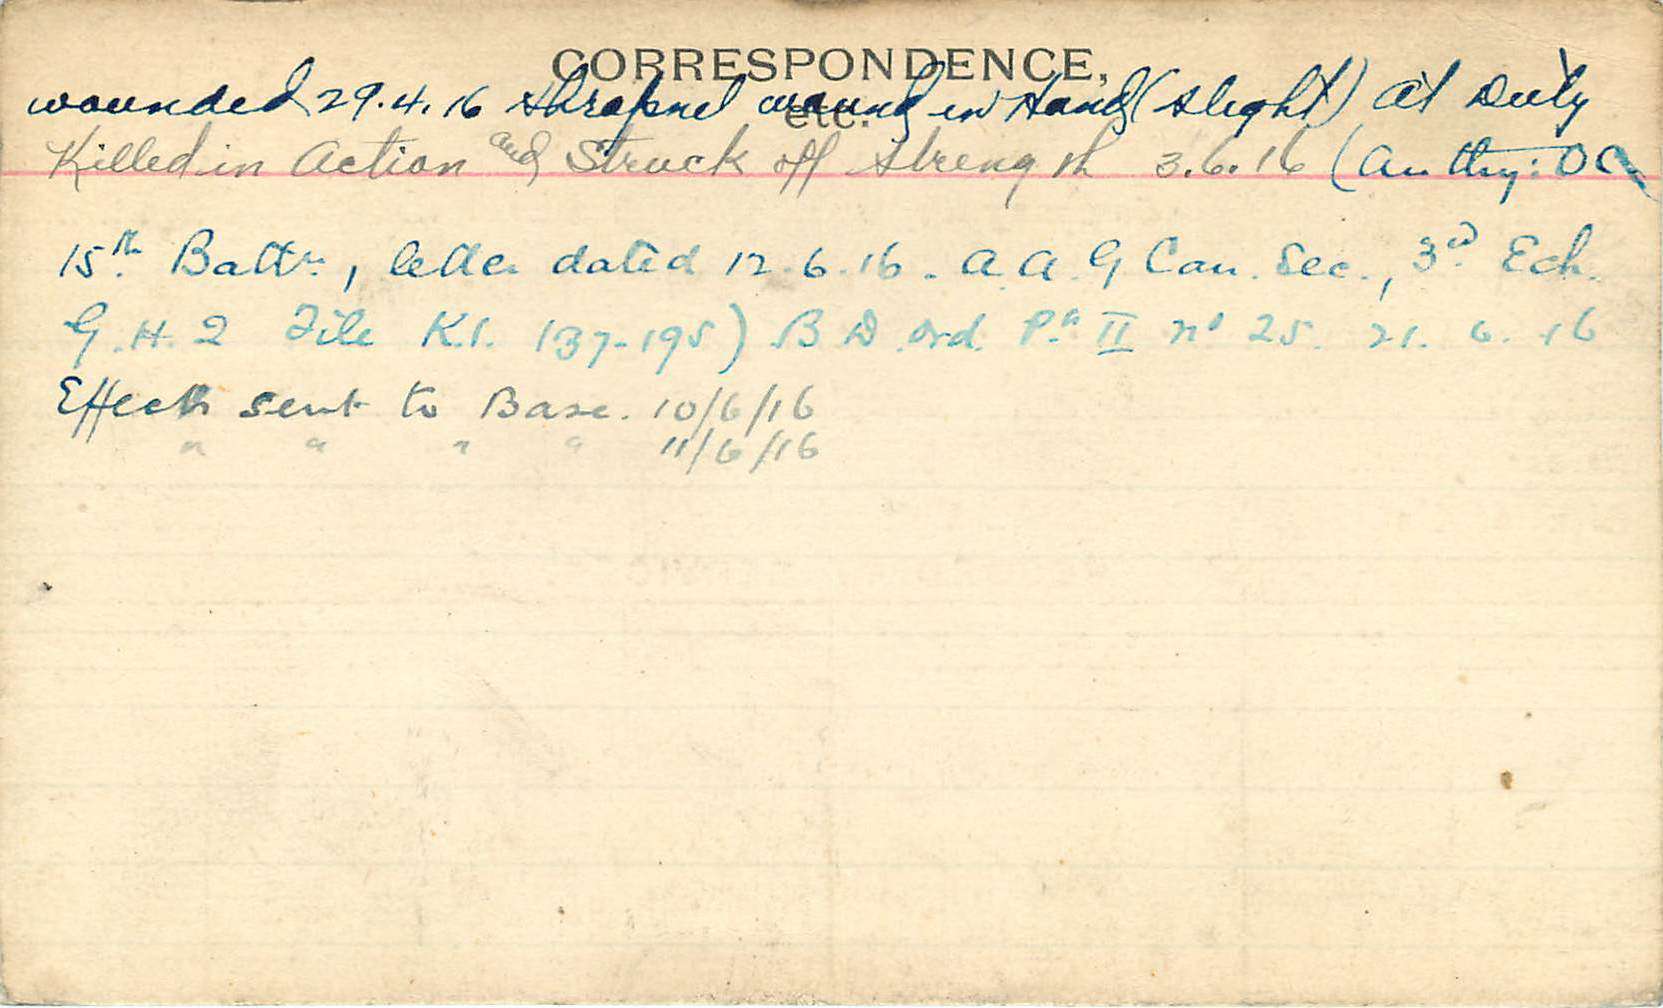 CORRESPONDENCE,
etc.
wounded 29.4.16 shrapnel wound in Hand (slight) at Duty
Killed in Action and Struck off strength 3.6.16 (Authy: OC
15th Battn, letter dated 12.6.16. A.A.G Can. Sec., 3rd Ech.
G.H.Q File K.1. 137-195) B D Ord. Pt II No 25. 21.6.16
Effects sent to Base. 10/6/16
" " " " 11/6/16